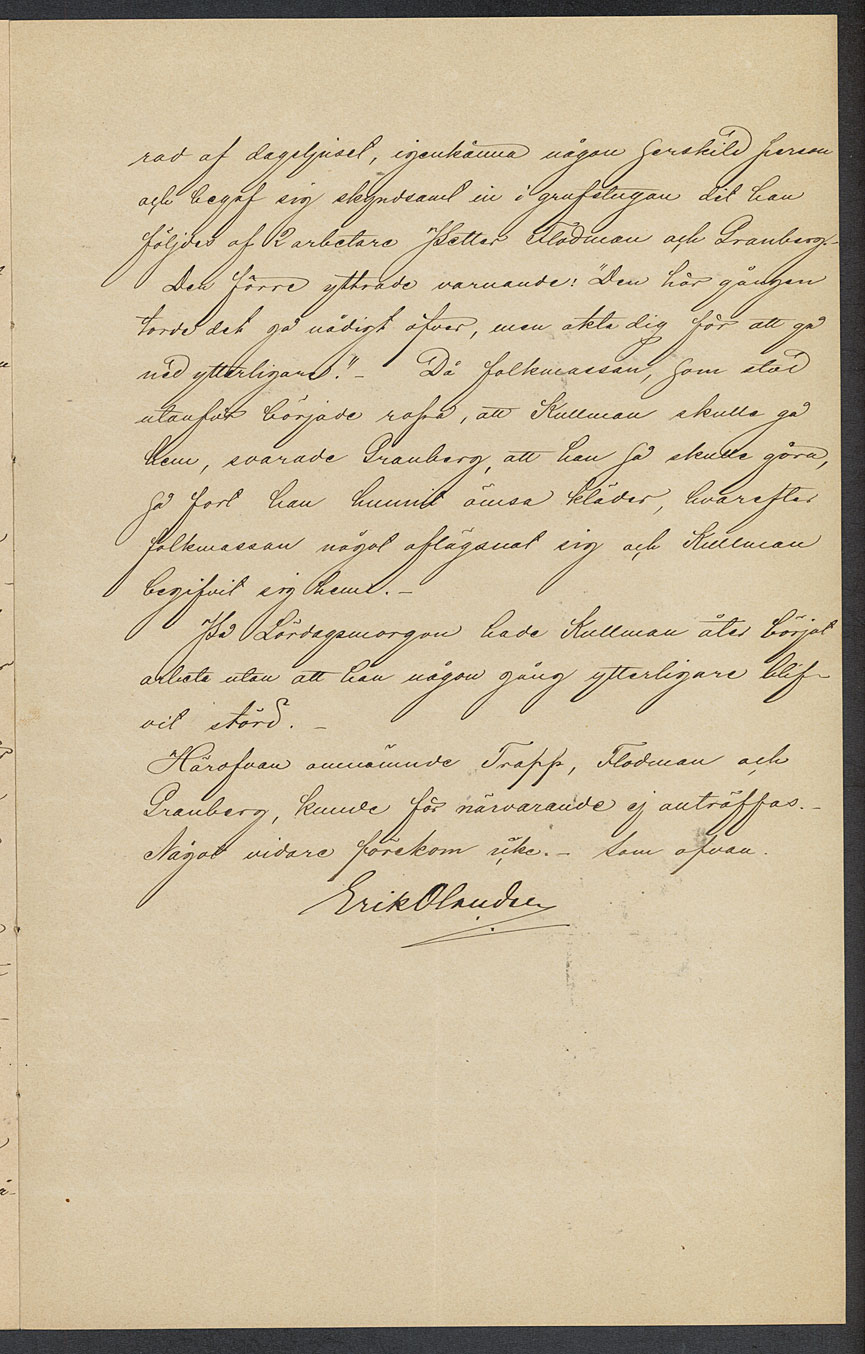 rad af dagsljuset, igenkänna någon särskild person
och begaf sig skyndsamt in i grufstugan dit han
följdes af 2 arbetare Petter Flodman och Granberg.-
Den förre yttrade varnande: "Den här gången
torde det gå nådigt öfver, men akta dig för att gå
ned ytterligare."- Då folkmassan, som stod
utanför började ropa, att Kullman skulle gå
hem, svarade Granberg, att han så skulle göra,
så fort han hunnit ömsa kläder, hvarefter
folkmassan något aflägsnat sig och Kullman
begifvit sig hem.-
På Lördagsmorgon hade Kullman åter börjat
arbeta utan att han någon gång ytterligare blif-
vit störd.-
Härofvan omnämnde Trapp, Flodman och
Granberg, kunde för närvarande ej anträffas.-
Något vidare förekom icke.- Som ofvan.
Erik Olandser